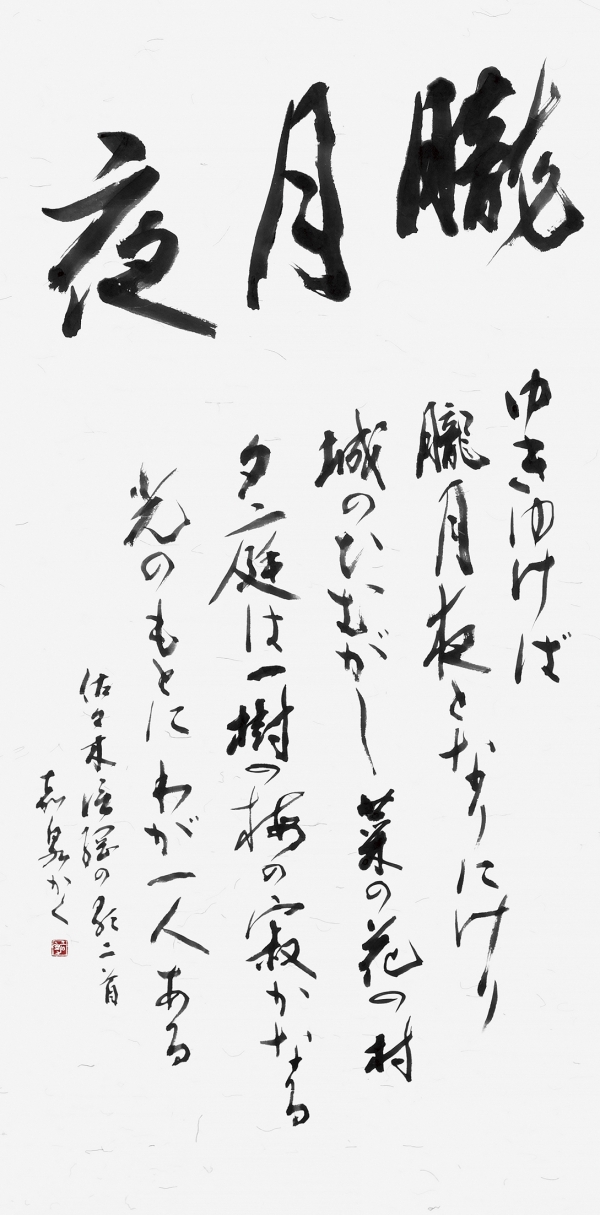 朧月夜
ゆきゆけば
朧月夜となりにけり
城のひむがし菜の花の村
夕庭は一樹の梅の寂かなる
光のもとにわが一人ある
佐々木信綱の歌二首
嘉泉かく